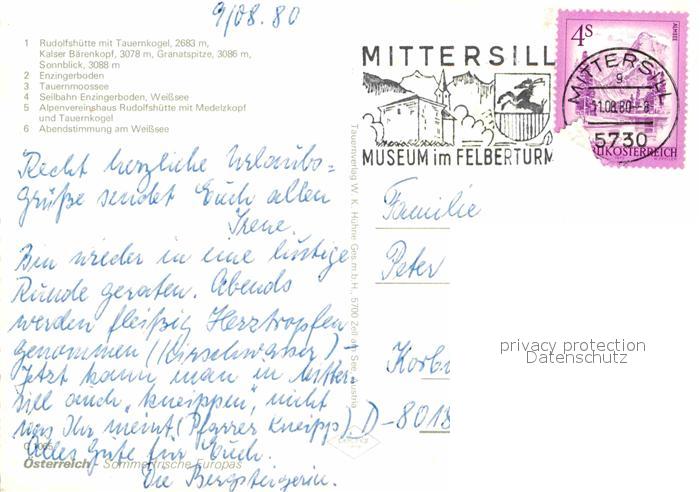 9/08.80
1 Rudolfshütte mit Tauernkogel, 2683 m,
Kalser Bärenkopf, 3078 m, Granatspitze, 3086 m,
Sonnblick, 3088 m
2 Enzingerboden
3 Tauernmoossee
4 Seilbahn Enzingerboden, Weißsee
5 Alpenvereinshaus Rudolfshütte mit Medelzkopf
und Tauernkogel
6 Abendstimmung am Weißsee
Recht herzliche Urlaubs=
grüße sendet Euch allen
Irene.
Bin wieder in eine lustige
Runde geraten. Abends
werden fleißig Herztropfen
genommen (Kirschwasser) –
Jetzt kann man in Mitter-
sill auch „kneippen", nicht
was Ihr meint (Pfarrer Kneipp)
Alles Gute für Euch.
Die Bergsteigerin.
Österreich – Sommerfrische Europas
Tauernverlag W. K. Hühne Ges.m.b.H., 5700 Zell am See, Austria
MITTERSILL
MUSEUM im FELBERTURM
4S
ALMSEE
MITTERSILL
9
11.08.80-8
5730
REPUBLIK ÖSTERREICH
Familie
Peter
Korb
D-8018
privacy protection
Datenschutz